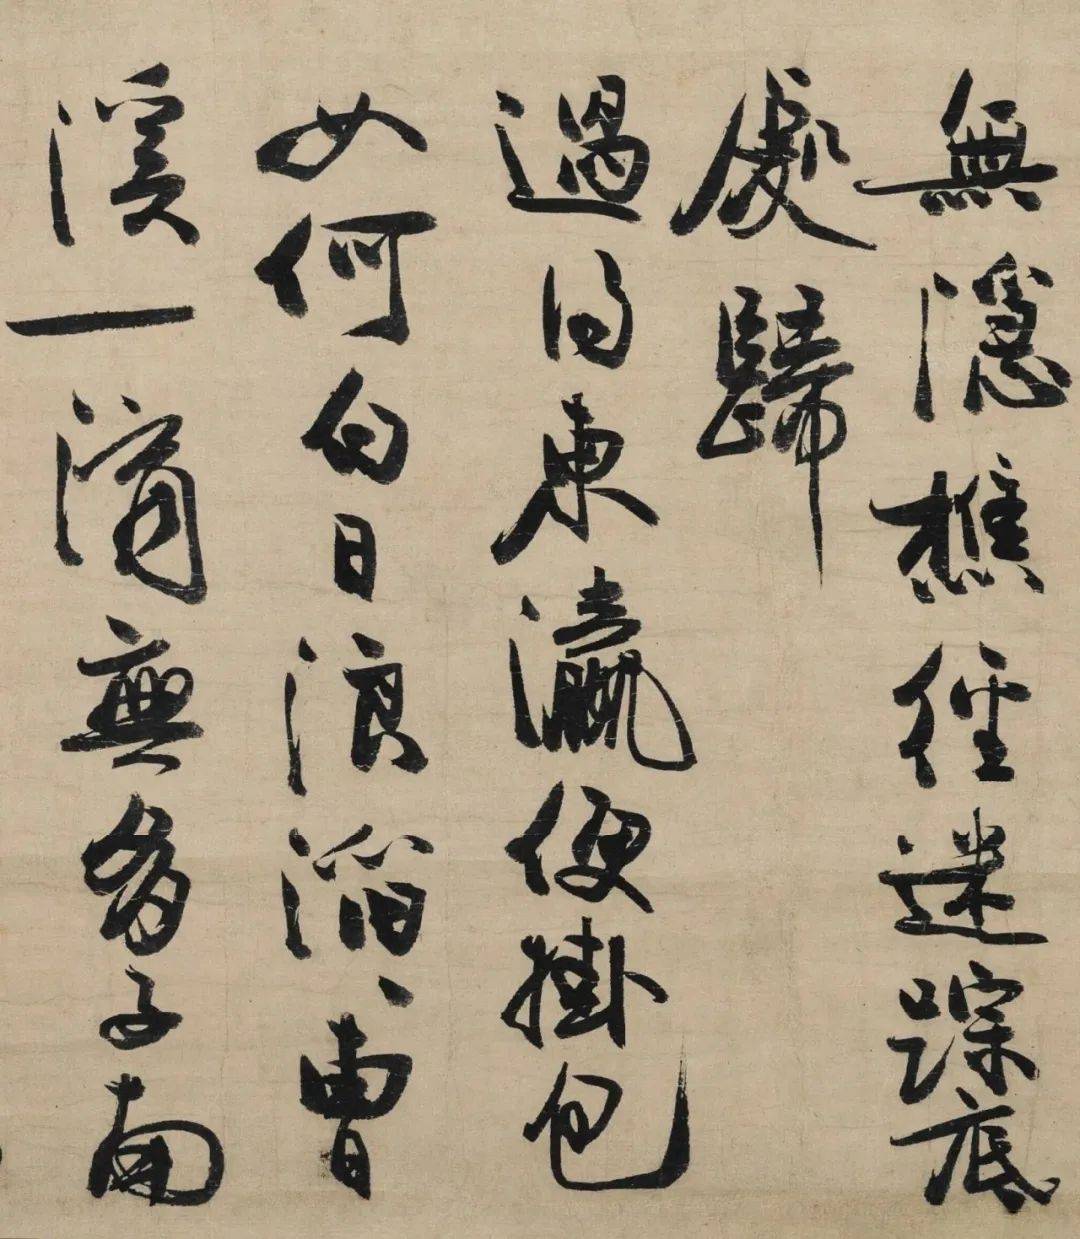 無隱樵徑迷踪底
處歸
過得東瀛便掛包
如何白日浪滔〻曹
溪一滴無多子南